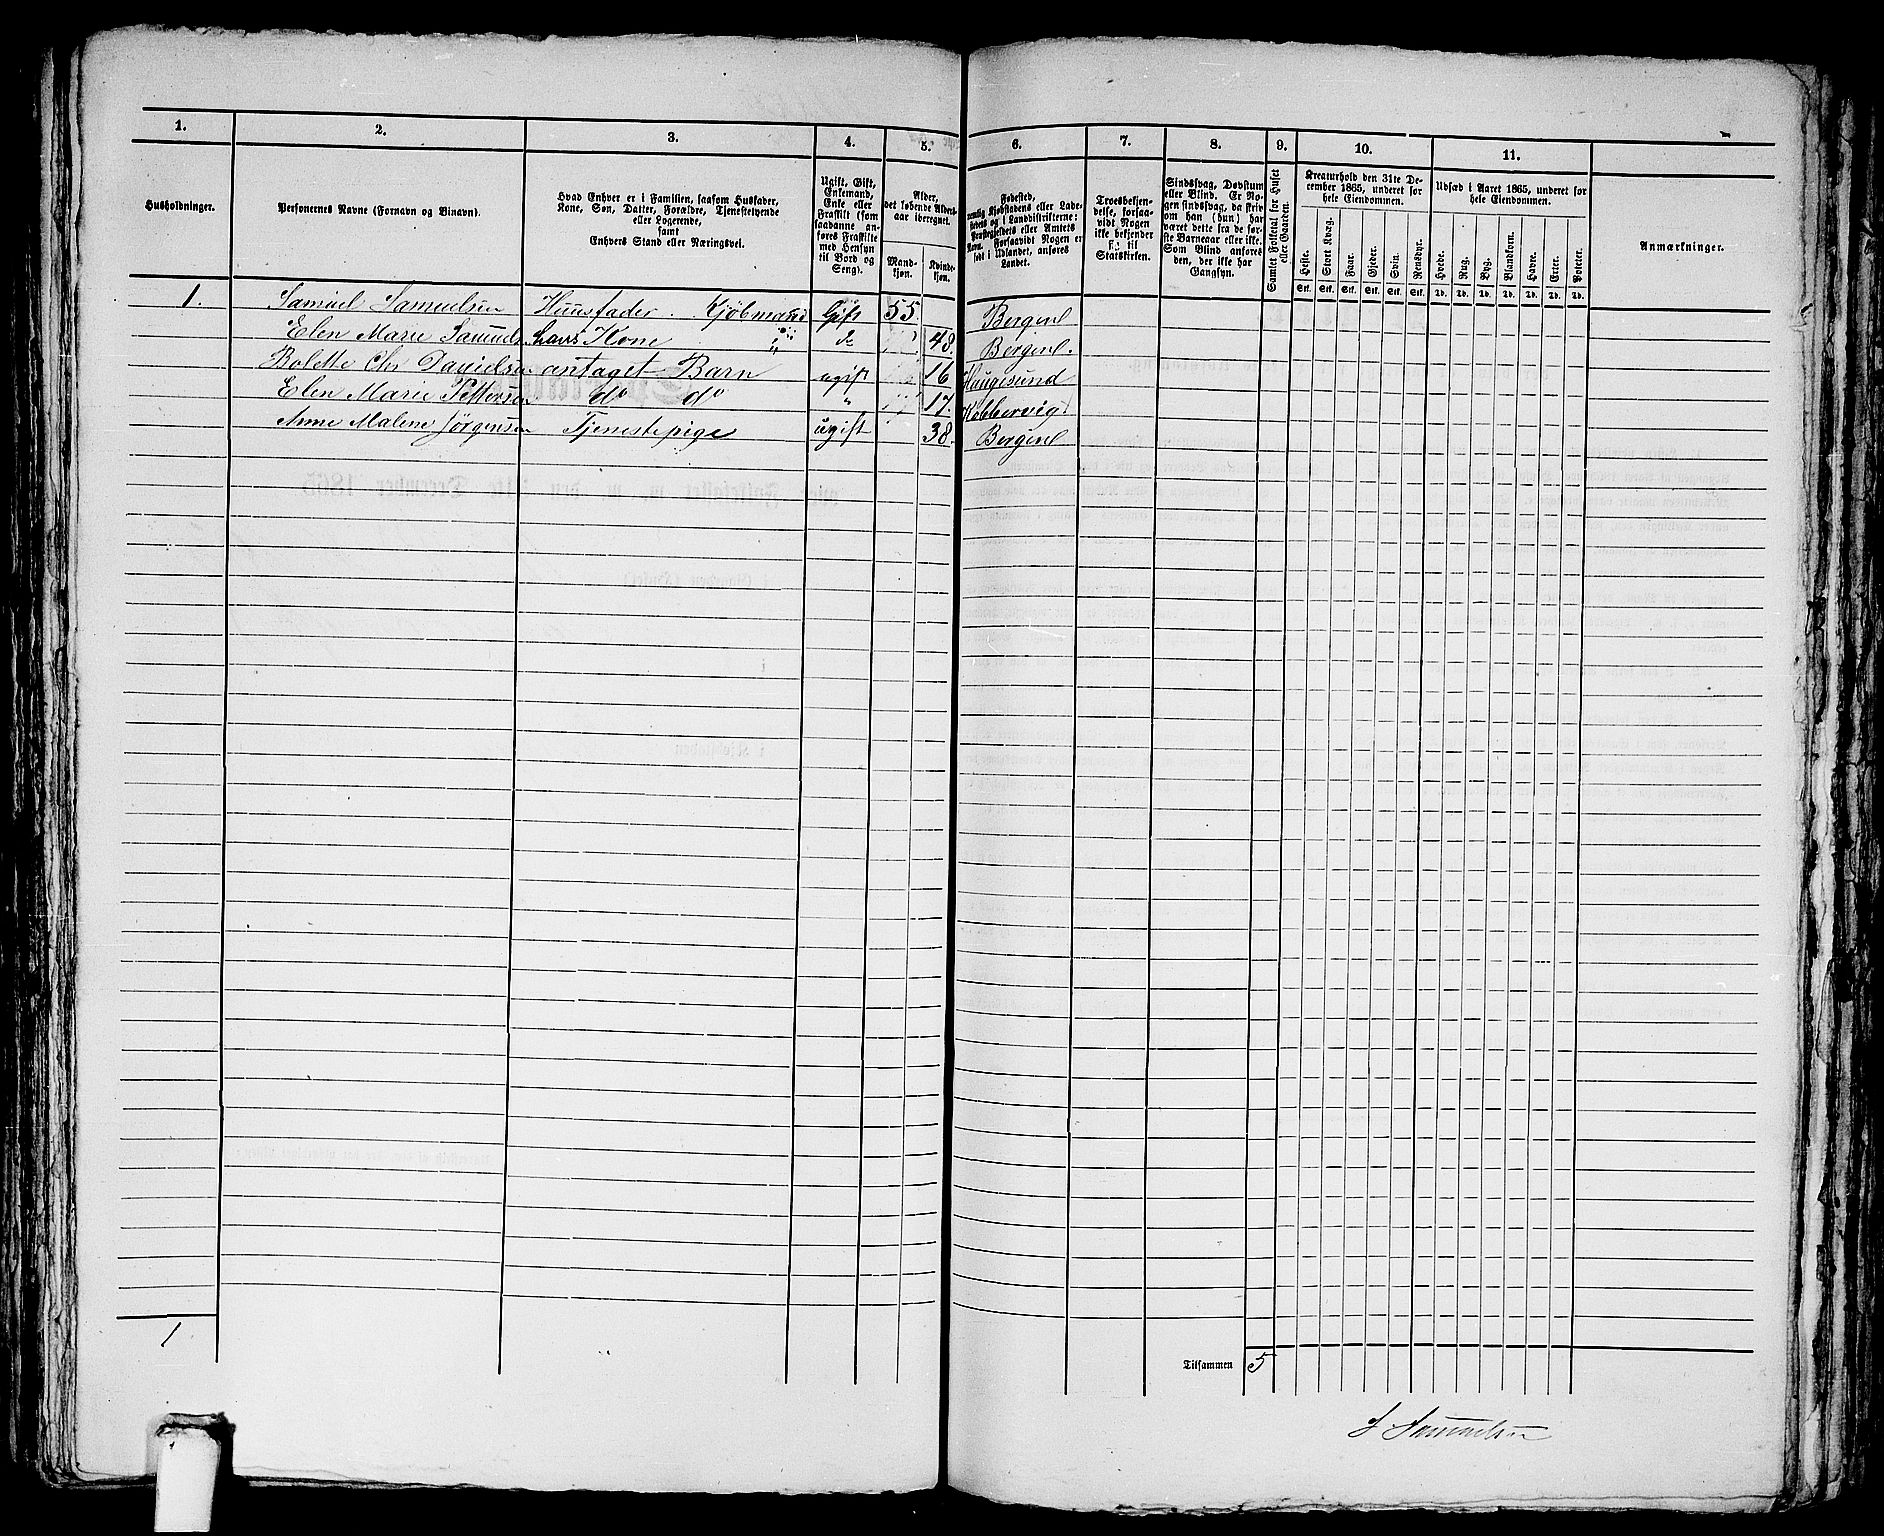 1. 2. 3. 4. 5. 6. 7. 8. 9. 10. 11.
Husholdninger.
Personernes Navne (Fornavn og Binavn).
Hvad Enhver er i Familien, saasom Husfader,
Kone, Søn, Datter, Forældre, Tjenestetyende
eller Logerende,
samt
Enhvers Stand eller Næringsvei.
Ugift, Gift,
Enkemand,
Enke eller
Fraskilt (som
saadanne an-
føres Fraskilte
med Hensyn
til Bord og
Seng).
Alder,
det løbende Alders-
aar iberegnet.
Mand-
kjøn.
Kvinde-
kjøn.
Fødested,
nemlig Kjøbstadens eller Lade-
stedets og i Landdistrikterne:
Præstegjeldets eller Amtets
Navn. Forsaavidt Nogen er
født i Udlandet, anføres
Landet.
Troesbekjen-
delse, forsaa-
vidt Nogen
ikke bekjender
sig til
Statskirken.
Sindssvag, Døvstum
eller Blind. Er No-
gen sindssvag, da skri-
ves om han (hun) har
været dette fra de før-
ste Barneaar eller ikke.
Som Blind anføres
den, der ikke har
Gangsyn.
Samlet Folketal for Huset
eller Gaarden.
Kreaturhold den 31te De-
cember 1865, underet for
hele Eiendommen.
Heste. Stort Kvæg. Faar. Gjeder. Svin. Rensdyr.
Stk. Stk. Stk. Stk. Stk. Stk.
Udsæd i Aaret 1865, underet for
hele Eiendommen.
Hvede. Rug. Byg. Blandkorn. Havre. Erter. Poteter.
Td. Td. Td. Td. Td. Td. Td.
Anmærkninger.
1. Samuel Samuelsen Huusfader. Kjøbmand Gift 55 Bergen
Elen Marie Samuels hans Kone do 48. Bergen.
Bolette Chr Danielsen antaget Barn ugift 16 Haugesund
Elen Marie Pettersen do do " 17. Kobbervig
Anne Malene Jørgensen Tjenestepige ugift 38. Bergen
1
Tilsammen 5
S Samuelsen